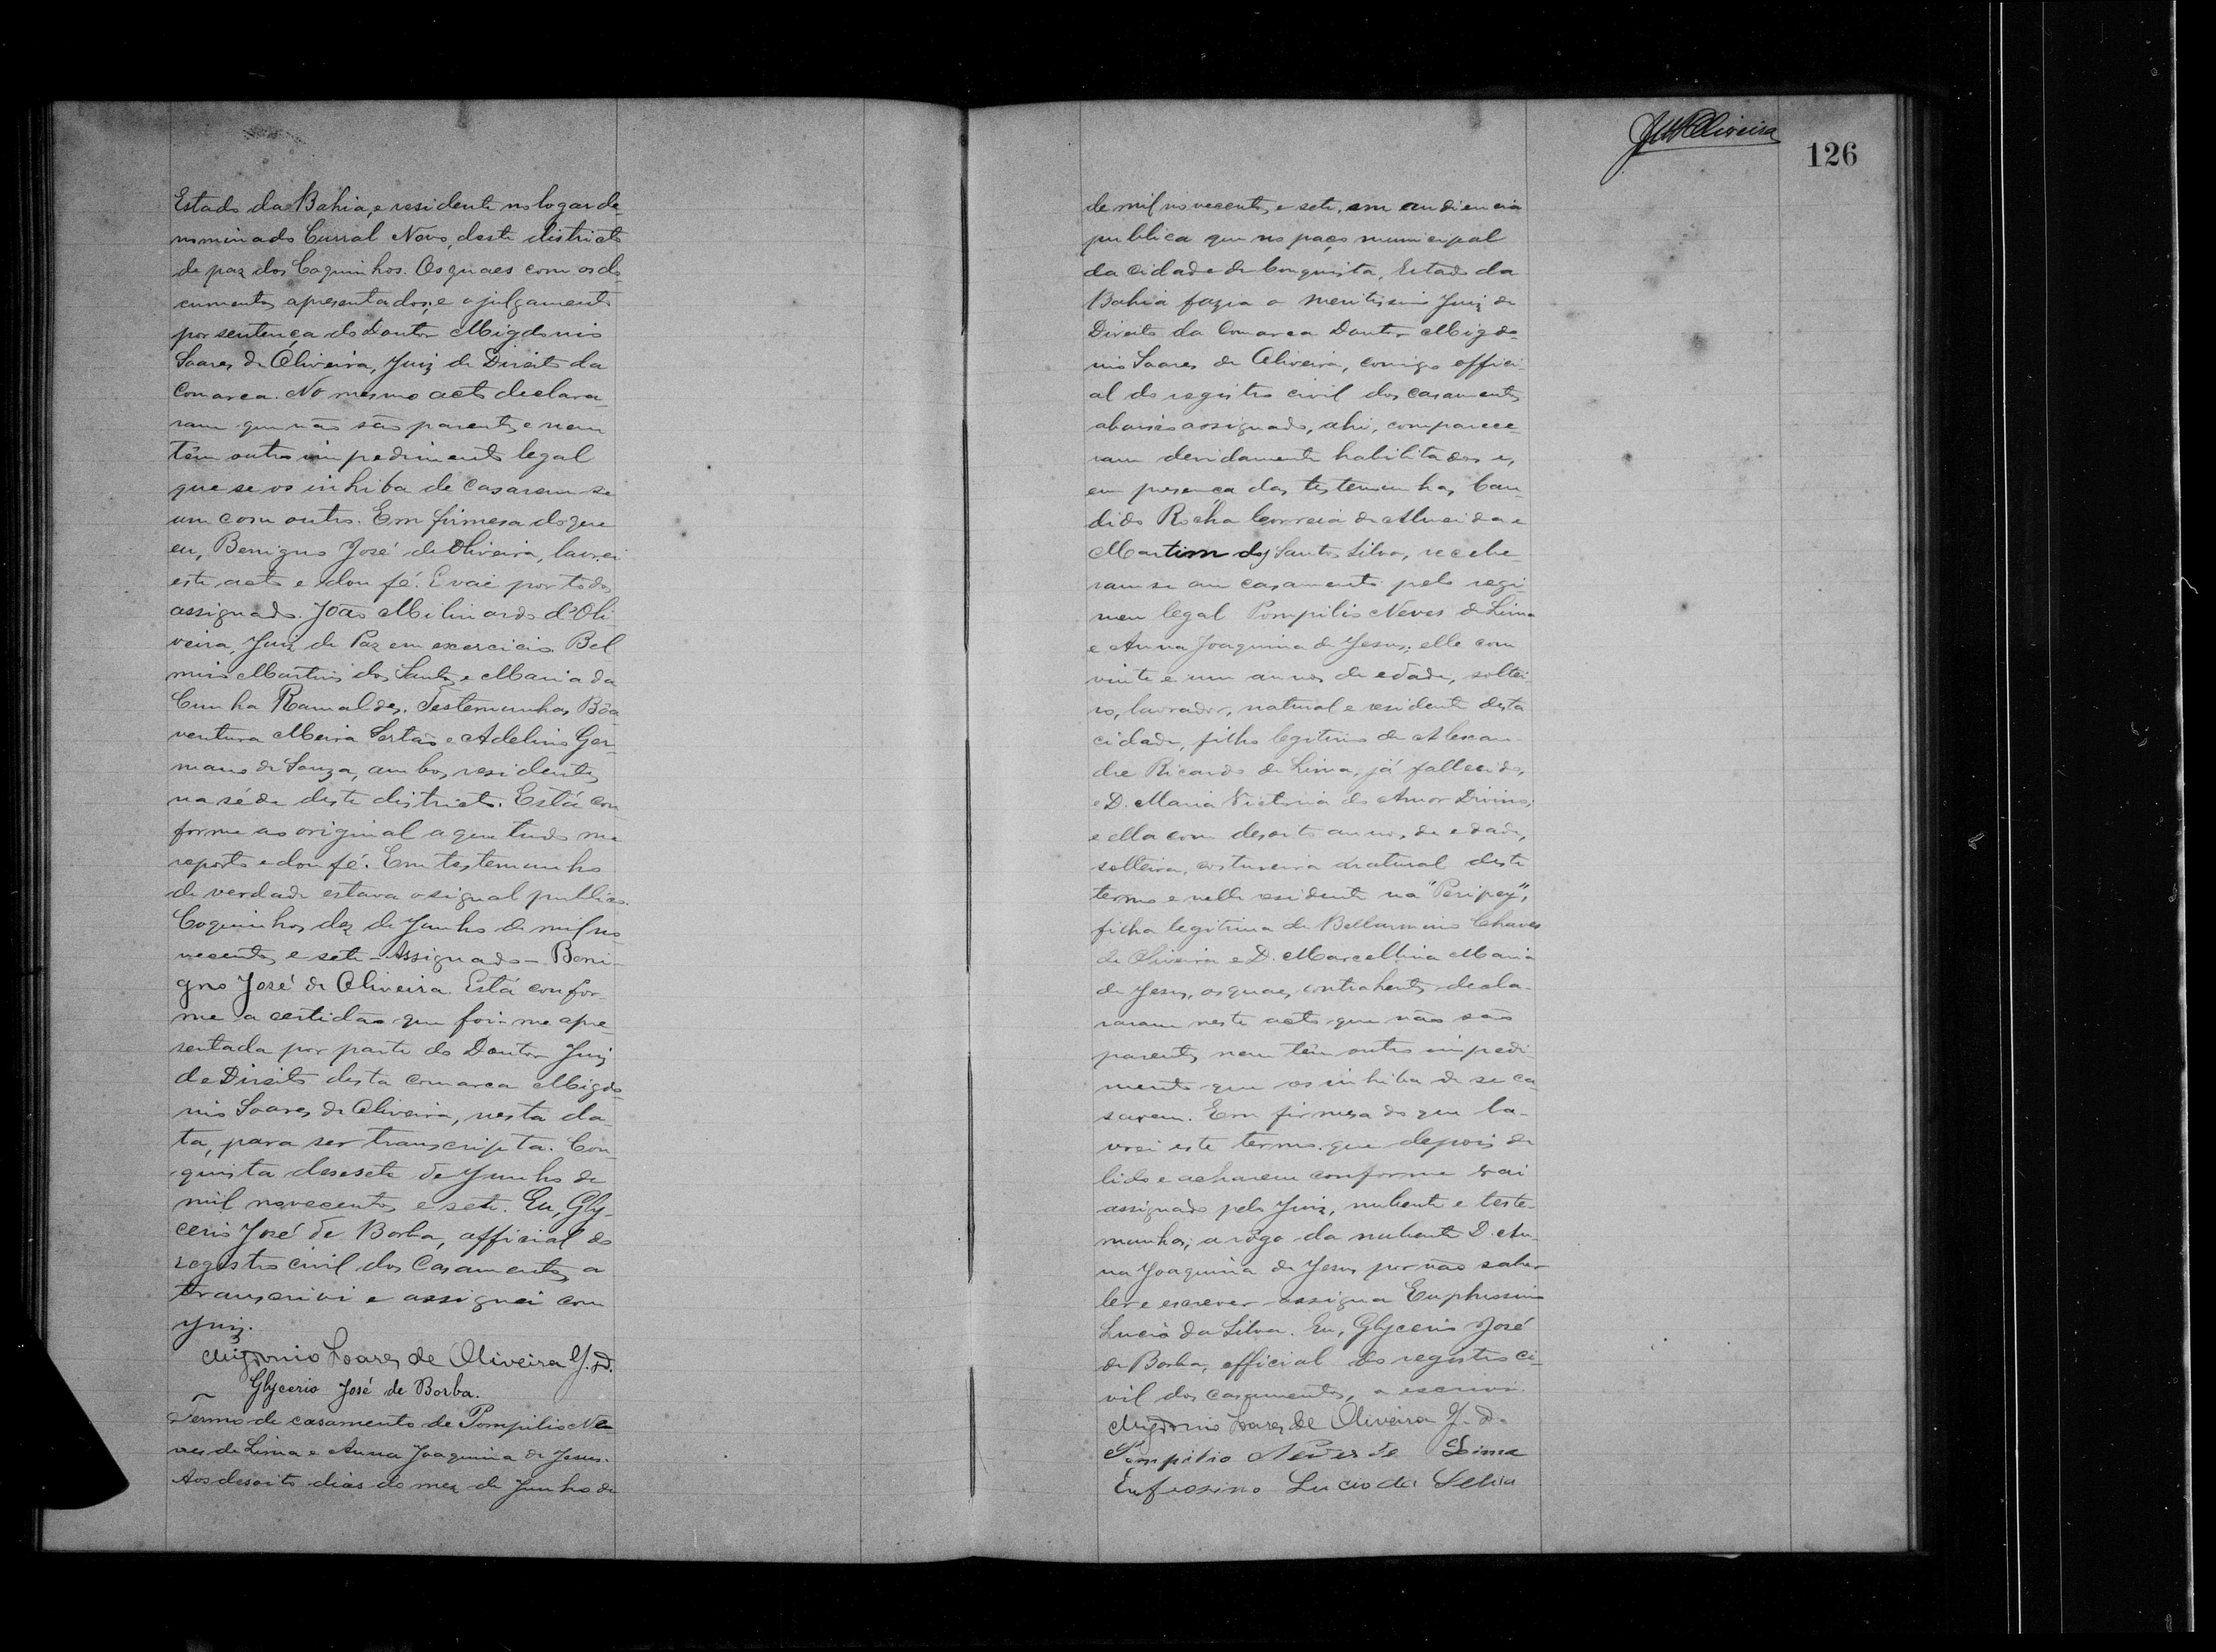 Estado da Bahia, e residente no logar de-
nominado Curral Novo, deste districto
de paz dos Coquinhos. Os quaes com os do
cumentos apresentados, e o julgamento
por sentença do Doutor Migdonio
Soares de Oliveira, Juiz de Direito da
Comarca. No mesmo acto declara-
ram que não são parentes e nem
têm outro impedimento legal
que se os inhiba de casarem-se
um com outro. Em firmesa do que
eu, Benigno José de Oliveira, lavrei
este acto e dou fé. E vai por todos
assignado. João d'Oli-
veira, Juiz de Paz em exercicio. Bel
mino Martins dos Santos e Maria da
Cunha Ramaldes. Testemunhas, Bôa
ventura Meira Sertão e Adelino Ger-
mano de Souza, ambos residentes
na séde deste districto. Está con
forme ao original a que tudo me
reporto e dou fé. Em testemunho
de verdade estava o signal publico.
Coquinhos, dez de Junho de mil no
vecentos e sete - Assignado - Beni-
gno José de Oliveira. Está confor-
me a certidão que foi-me apre-
sentada por parte do Doutor Juiz
de Direito desta comarca Migdo-
nio Soares de Oliveira, nesta da-
ta, para ser transcripta. Con-
quista desesete de Junho de
mil novecentos e sete. Eu, Gly-
cerio José de Borba, official do
registro civil dos Casamentos a
transcrivi e assignei com
Juiz.
Migdonio Soares de Oliveira J. D.
Glycerio José de Borba.
Termo de casamento de Pompilio Ne
ves de Lima e Anna Joaquina de Jesus.
Aos desoito dias do mez de Junho de
126
de mil novecentos e sete, em audiencia
publica que no paço municipal
da cidade de Conquista, Estado da
Bahia fazia o meritissimo Juiz de
Direito da Comarca Doutor Migdo-
nio Soares de Oliveira, comigo offici
al do registro civil dos casamentos
abaixo assignado, ahi, comparece-
ram devidamente habilitados e,
em presença das testemunhas, Can
dido Rocha Correia de Almeida e
Martim dos Santos Silva, recebe-
ram-se em casamento pelo regi-
men legal Pompilio Neves de Lima
e Anna Joaquina de Jesus; elle com
vinte e um annos de edade, soltei-
ro, lavrador, natural e residente desta
cidade, filho legitimo de Alexan-
dre Ricardo de Lima, já fallecido,
e D. Maria Victoria do Amor Divino;
e ella com desoito annos de edade,
solteira, costureira natural deste
termo e nelle residente na "Peripery",
filha legitima de Bellarmino Chaves
de Oliveira e D. Marcellina Maria
de Jesus, os quaes contrahentes decla-
raram neste acto que não são
parentes nem têm outro impedi-
mento que os inhiba de se ca-
sarem. Em firmesa do que la-
vrei este termo que depois de
lido e acharem conforme vai
assignado pelo Juiz, nubente e teste-
munhas, a rôgo da nubente D. An-
na Joaquina de Jesus por não saber
ler e escrever assigna Euphrosino
Lucio da Silva. Eu, Glycerio José
de Borba, official do registro ci-
vil dos casamentos, o escrivi.
Migdonio Soares de Oliveira J. D.
Pompilio Neves de Lima
Eufrosino Lucio da Silva